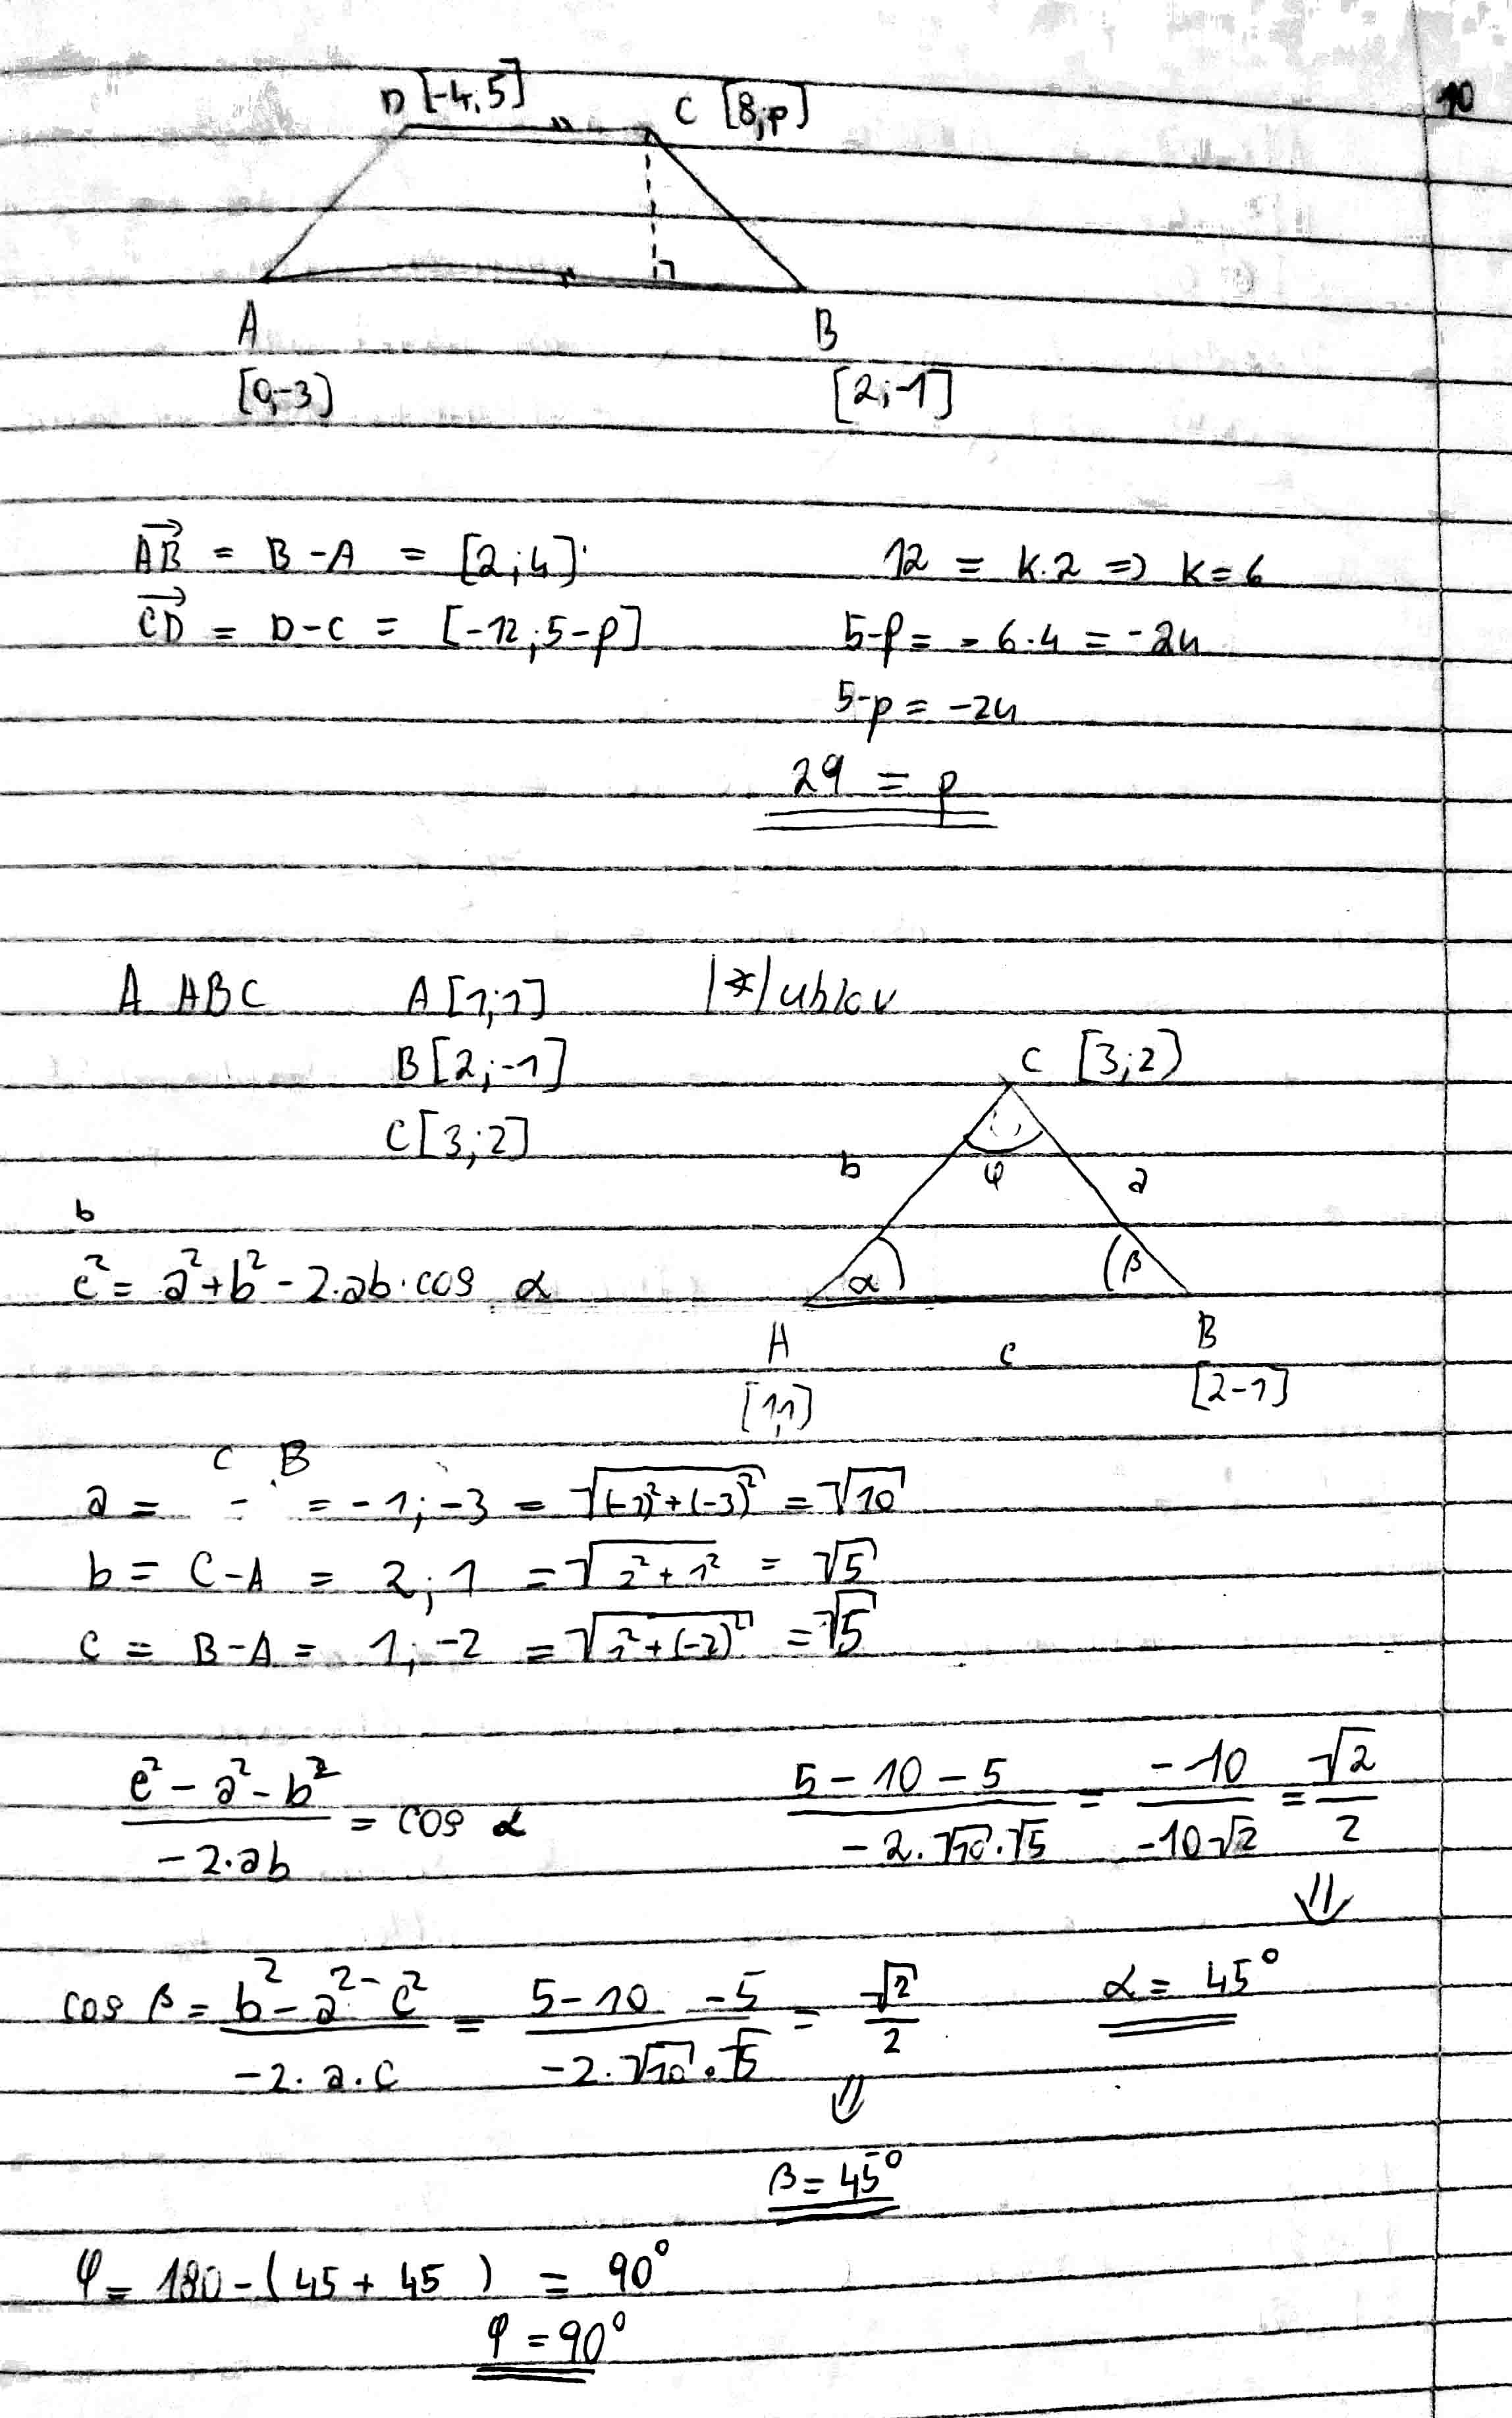 10
D [-4;5] C [8;p]
A B
[0;-3) [2;-1]
AB = B - A = [2;4] 12 = k.2 => k=6
CD = D-C = [-12;5-p] 5-p = -6.4 = -24
5-p = -24
29 = p
Δ ABC A[1;1] |∢| uhlov
B[2;-1] C [3;2)
C[3;2]
b φ a
b
c² = a²+b² - 2.ab.cos α α β
A c B
[1,1) [2-1]
C B
a = - = -1;-3 = √(-1)²+(-3)² = √10
b = C-A = 2;1 = √2²+1² = √5
c = B-A = 1;-2 = √1²+(-2)² = √5
c² - a² - b² / -2.ab = cos α 5-10-5 / -2.√10.√5 = -10 / -10√2 = √2 / 2
⇓
cos β = b² - a² - c² / -2.a.c = 5-10-5 / -2.√10.√5 = √2 / 2 α = 45°
⇓
β = 45°
φ = 180-(45+45) = 90°
φ = 90°